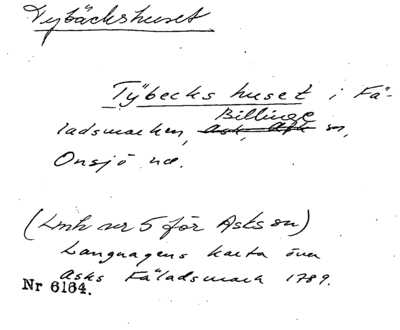 Vybäckshuset
Tÿbecks huset i Fä-
Billinge
ladsmarken, Ask, sn,
Onsjö hd.
(Lmh nr 5 för Asks sn)
Languagens karta över
Asks Fäladsmark 1789.
Nr 6164.